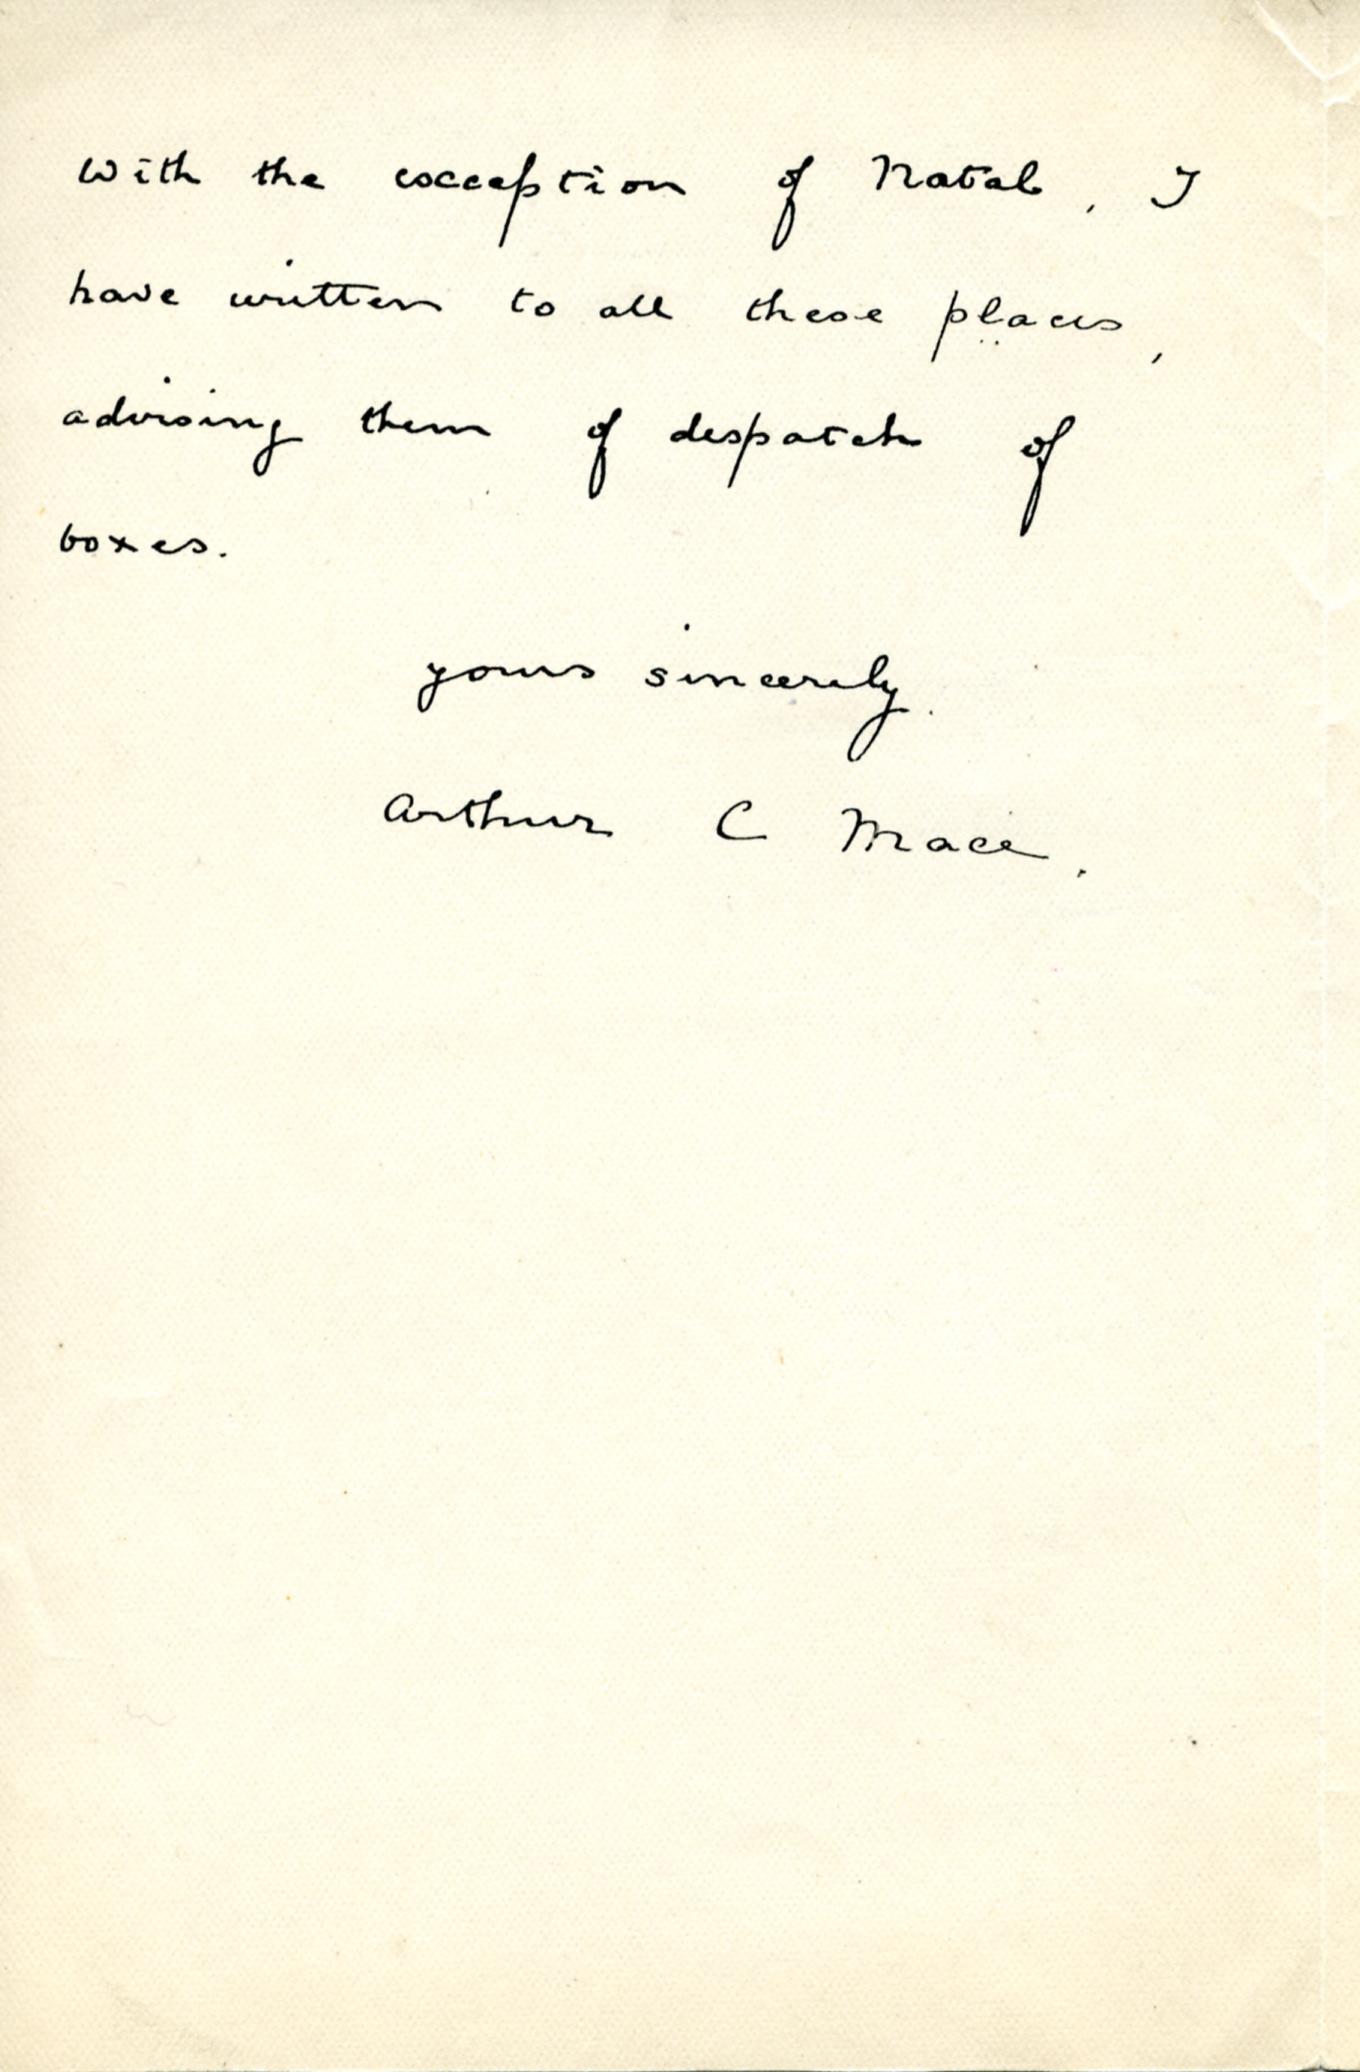 With the exception of Natal, I
have written to all these places,
advising them of despatch of
boxes.
yours sincerely.
Arthur C Mace.